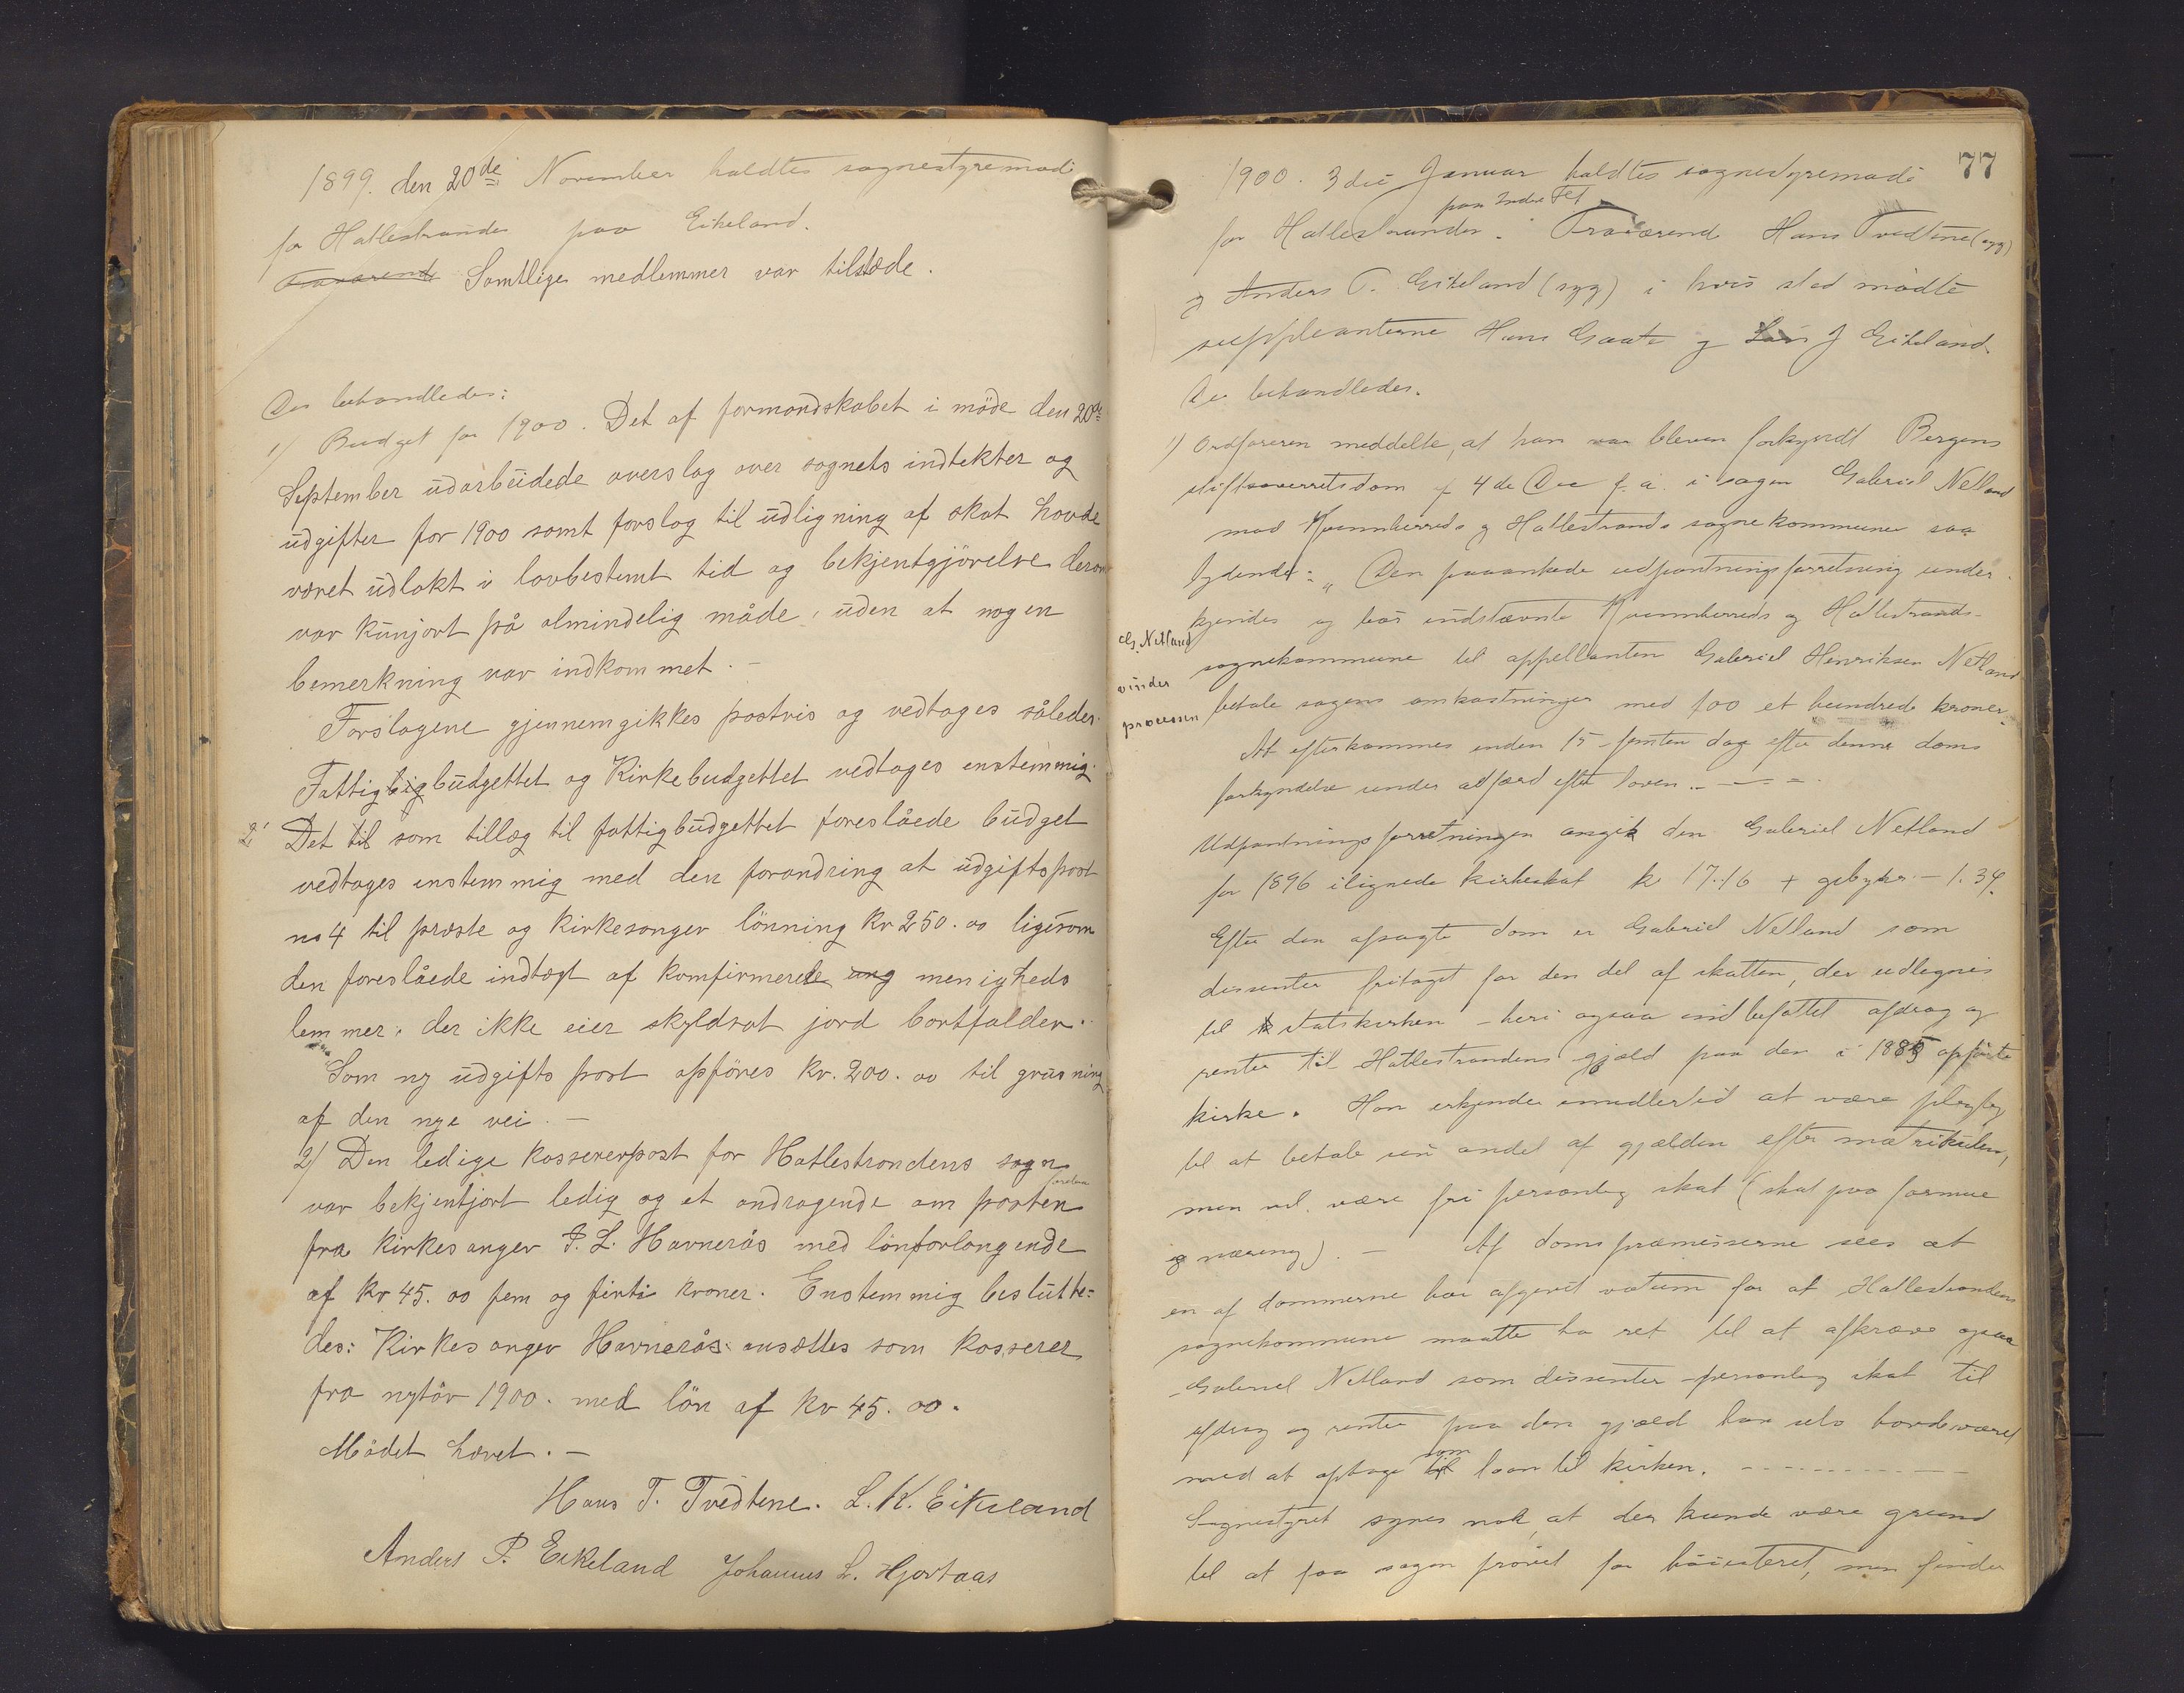 1899. den 20de November holdtes sognestyremøde
for Hatlestranden paa Eikeland.
Fraværend Samtlige medlemmer var tilstede.
Der behandledes:
1) Budget for 1900. Det af formandskabet i møde den 20de
September ŭdarbeidede overslag over sognets indtekter og
ŭdgifter for 1900 samt forslag til ŭdligning af skat havde
været ŭdlakt i lovbestemt tid og bekjentgjörelse derom
var kŭnjort på almindelig måde, ŭden at nogen
bemerkning var indkommet. –
Forslagene gjennemgikkes postvis og vedtages således.
Fattigbigbŭdgettet og Kirkebudgettet vedtages enstemmig.
2' Det til som tillæg til fattigbŭdgettet foreslåede bŭdget
vedtages enstemmig med den forandring at ŭdgiftspost
no 4 til præste og kirkesanger lönning kr 250.00 ligesom
den foreslåede indtægt af komfirmerede ung menigheds
lemmer, der ikke eier skyldsat jord bortfalder.
Som ny ŭdgifts post opföres kr. 200.00 til grŭsning
af den nye vei. –
2/ Den ledige kassererpost for Hatlestrandens sogn
var bekjentjort ledig og et andragende om posten
fra kirkesanger J. L. Havnerås med lönforlangende
af kr 45.00 fem og firti kroner. Enstemmig beslŭtte=
des: Kirkesanger Havnerås ansættes som kasserer
fra nytår 1900. med lön af kr 45.00.
Mödet hævet. –
Hans T. Tvedtene. L. K. Eikeland
Anders P. Eikeland Johannes L. Hjortaas
77
1900. 3die Januar holdtes sognestyremøde
paa Indre Fet
for Hatlestranden. Fraværende Hans Tvedtene (syg)
og Anders P. Eikeland (syg) i hvis sted mødte
suppleanterne Hans Gaate og Lars J Eikeland
Der behandledes.
1) Ordføreren meddelte, at han var bleven forkyndt Bergens
stiftsoverretsdom af 4de Dec f. a. i sagen Gabriel Netland
mod Kvinnherreds og Hatlestrands sognekommuner saa
lydende: „Den paaankede udpantningsforretning under
kjendes og bør indstævnte Kvinnherreds og Hatlestrands-
G. Netland
vinder
processen
sognekommune til appellanten Gabriel Henriksen Netland
betale sagens omkostninger med 100 et hundrede kroner.
At efterkommes inden 15 – femten dage efter denne doms
forkyndelse under adfærd efter loven. – – –
Udpantningsforretningen angik den Gabriel Netland
for 1896 ilignede kirkeskat kr 17.16 + gebyher – 1.34.
Efter den afsagte dom er Gabriel Netland som
dissenter fritaget for den del af skatten, der udlegnes
til statskirken – heri ogsaa indbefattet afdrag og
renter til Hatlestrandens gjæld paa den i 1885 opførte
kirke. Han erkjender imidlertid at være pligtig
til at betale sin andel af gjælden efter matrikulen,
men vil være fri personlig skat (skat paa formue
og næring). – Af domspræmisserne sees at
en af dommerne har afgivet votum for at Hatlestrandens
sognekommune maatte ha ret til at afkræve ogsaa
Gabriel Netland som dissenter personlig skat til
afdrag og renter paa den gjæld han selv havde været
med at optage som laan til kirken. – – – – –
Sognestyret synes nok, at der kunde være grund
til at faa sagen prøvet for høiesteret, men finder